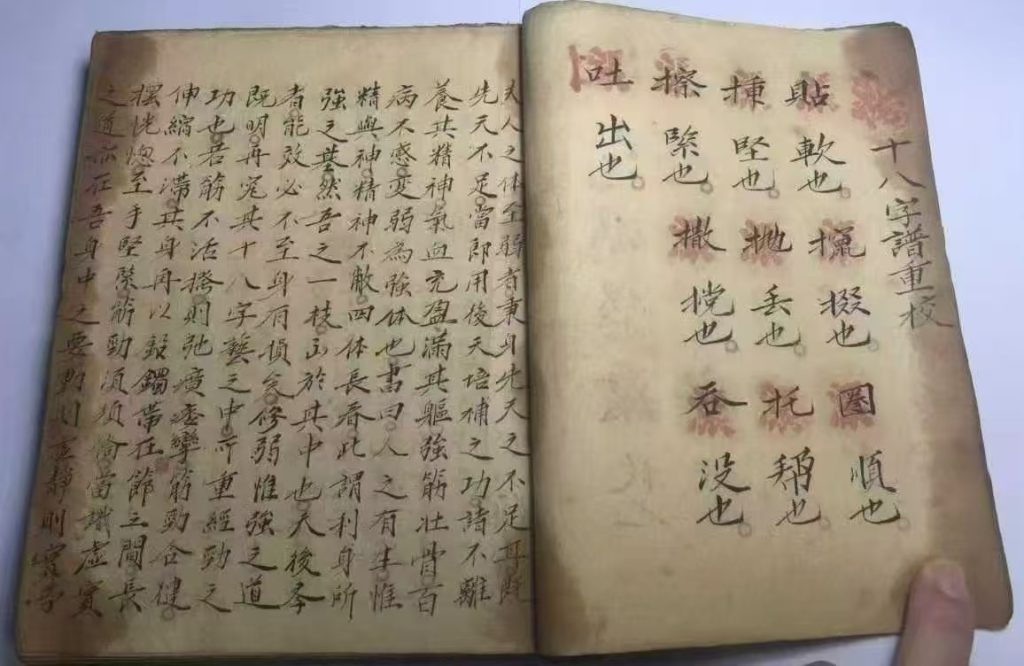 十八字譜重校
貼 軟也 掇也 圈 順也
堅也 拋 丟也 托 也
擦 緊也 撒 也 吞 没也
吐 出也
夫人之体至弱者秉身先天之不足耳既
先天不足當即用後天培補之功諸不離
養其精神氣血充盈滿其軀強筋壯骨百
病不惑变弱為強体也書曰人之有生惟
精與神精神不敝四体長春此謂利身所
強之基然吾之一枝出於其中也天後本
者能效必不至身有損矣修弱惟強之道
既明再究其十八字藝之中亦重經勁之
功也若筋不活撥則弛癀痿攣筋勁合健
伸縮不滯其身再以鐲帶在節之間長
擺恍惚至手堅緊筋勁須當識虛實
之道亦在吾身中之要則虛靜則實